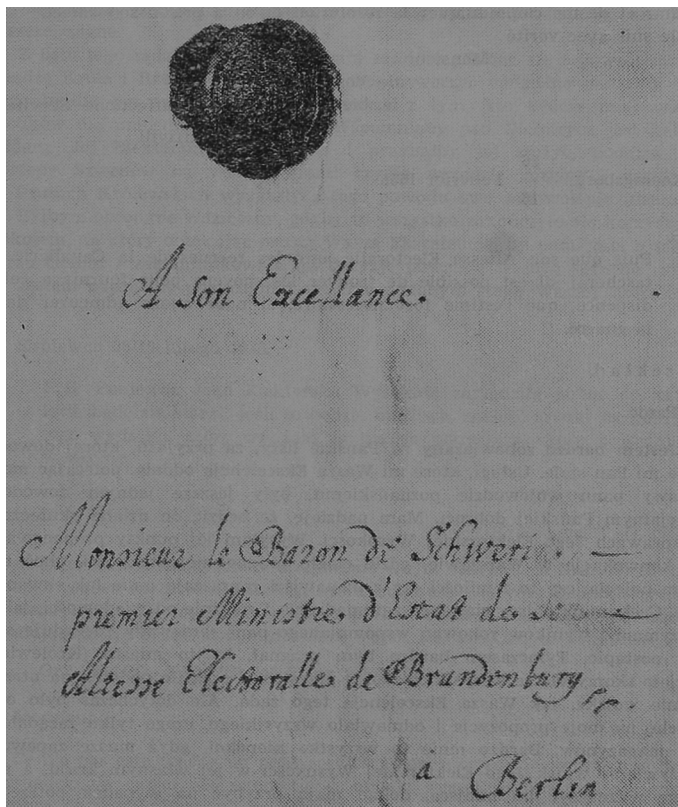 A son Excellance.
Monsieur le Baron de Schwerin
premier Ministre d'Estat de son
Altesse Electoralle de Brandenburg
a Berlin